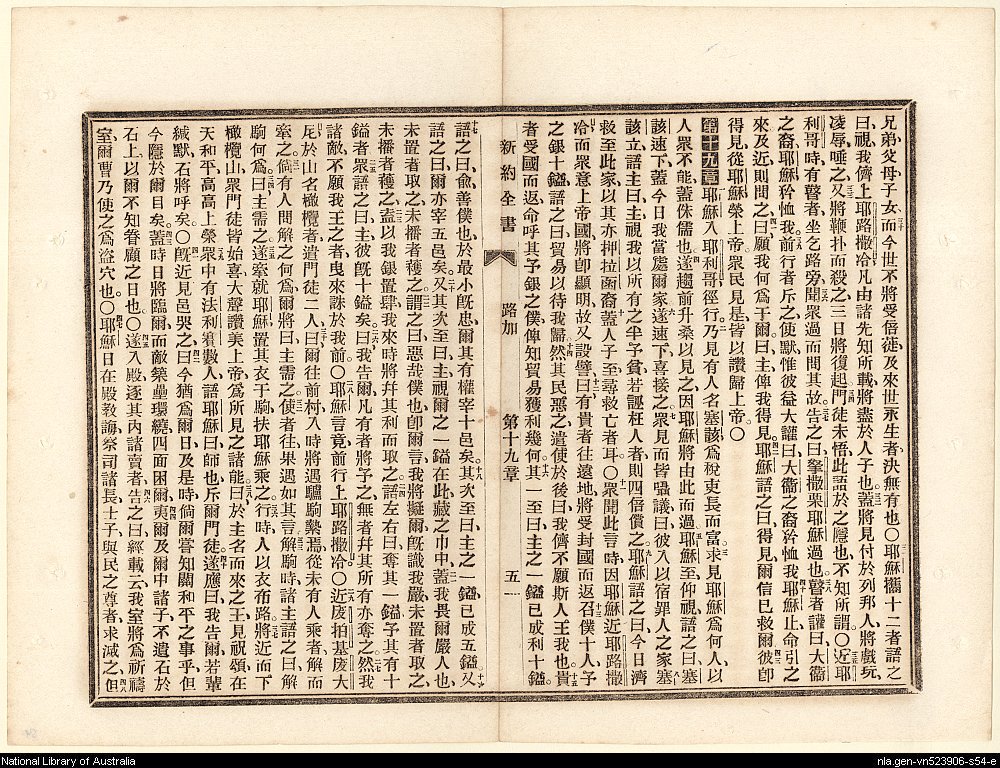 兄弟父母子女、而今世不將受倍蓰、及來世永生者、決無有也○耶穌攜十二者、語之
曰、視我儕上耶路撒冷、凡由諸先知所載、將盡於人子也、蓋將見付於列邦人、將戲玩、
凌辱、唾之、又將鞭扑而殺之、三日將復起、門徒未悟、此語於之隱也、不知所謂○近耶
利哥時、有瞽者、坐乞路旁、聞衆過、而問其故、告之曰、拏撒栗耶穌過也、瞽者讙曰、大衞
之裔耶穌矜恤我、前行者斥之使默、惟彼益大讙曰、大衞之裔矜恤我、耶穌止、命引之
來、及近則問之曰、願我何爲于爾、曰、主俾我得見、耶穌語之曰、得見、爾信已救爾、彼卽
得見、從耶穌榮上帝、衆民見是、皆以讚歸上帝○
第十九章 耶穌入耶利哥徑行、乃見有人名塞該、爲稅吏長而富、求見耶穌爲何人、以
人衆不能、蓋侏儒也、遂趨前升桑以見之、因耶穌將由此而過、耶穌至仰視、語之曰、塞
該速下、蓋今日我當處爾家、遂速下喜接之、衆見而皆囁議曰、彼入以宿罪人之家、塞
該立語主曰、主視我以所有之半予貧、若誣枉人者、則四倍償之、耶穌語之曰、今日濟
救至此家、以其亦押拉函裔、蓋人子至、尋救亡者耳○衆聞此言時、因耶穌近耶路撒
冷、而衆意上帝國將卽顯明、故又設譬曰、有貴者往遠地、將受封國而返、召僕十人、予
之銀十鎰、語之曰、貿易以待我歸、然其民惡之、遣使於後曰、我儕不願斯人王我也、貴
者受國而返、命呼其予銀之僕、俾知貿易獲利幾何、其一至曰、主之一鎰已成利十鎰、
新約全書 路加 第十九章 五一
語之曰、兪、善僕也、於最小旣忠、爾其有權宰十邑矣、其次至曰、主之一鎰已成五鎰、又
語之曰、爾亦宰五邑矣、又其次至曰、主視爾之一鎰在此、藏之巾中、蓋我畏爾嚴人也、
未置者取之、未播者穫之、謂之曰、惡哉僕也、卽爾言我將擬爾、旣識我嚴、未置者取之、
未播者穫之、盍以我銀置肆、我來時將幷其利而取之、語左右曰、奪其一鎰、予其有十
鎰者、衆語之曰、主彼旣十鎰矣、曰、我告爾、凡有者將予之、無者幷其所有亦奪之、然我
諸敵不願我王之者、曳來誅於我前○耶穌言竟、前行上耶路撒冷○近伐拍基伐大
尼、於山名橄欖者、遣門徒二人、曰、爾往前村、入時將遇驢駒縶焉、從未有人乘者、解而
牽之、倘有人問解之何爲、爾將曰、主需之、使者往、果遇如其言、解駒時、諸主語之曰、解
駒何爲、曰、主需之、遂牽就耶穌、置其衣于駒、扶耶穌乘之、行時、人以衣布路、將近而下
橄欖山、衆門徒皆始喜、大聲讚美上帝、爲所見之諸能、曰、於主名而來之王、見祝頌、在
天和平、高高上榮、衆中有法利賽數人、語耶穌曰、師也、斥爾門徒、遂應曰、我告爾、若輩
緘默、石將呼矣○旣近見邑哭之、曰、今猶爲爾日、及是時、倘爾嘗知關和平之事乎、但
今隱於爾目矣、蓋時日將臨爾、而敵築壘環繞、四面困爾、夷爾及爾中諸子、不遺石於
石上、以爾不知眷顧之日也○遂入殿、逐其內諸賣者、告之曰、經載云、我室將爲祈禱
室、爾曹乃使之爲盜穴也○耶穌日在殿敎誨、祭司諸長、士子、與民之尊者、求滅之、但
National Library of Australia
nla.gen-vn523906-s54-e